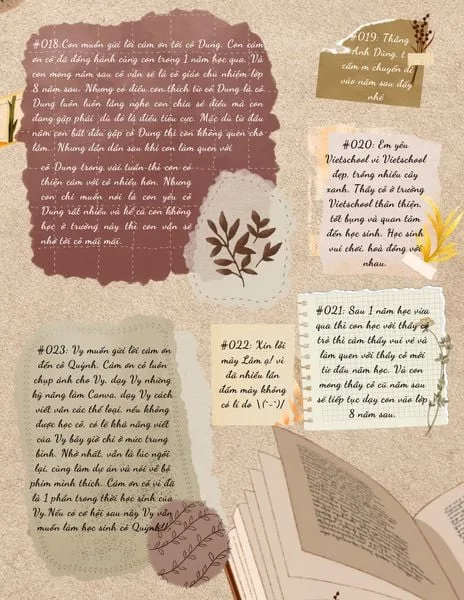 #018:Con muốn gửi lời cảm ơn tới cô Dung. Con cảm
ơn cô đã đồng hành cùng con trong 1 năm học qua. Và
con mong năm sau cô vẫn sẽ là cô giáo chủ nhiệm lớp
8 năm sau. Nhưng có điều con thích từ cô Dung là cô
Dung luôn luôn lắng nghe con chia sẻ điều mà con
đang gặp phải dù đó là điều tiêu cực. Mặc dù từ đầu
năm con bắt đầu gặp cô Dung thì con không quen cho
lắm.. Nhưng dần dần sau khi con làm quen với
cô Dung trong vài tuần thì con có
thiện cảm với cô nhiều hơn. Nhưng
con chỉ muốn nói là con yêu cô
Dung rất nhiều và kể cả con không
học ở trường này thì con vẫn sẽ
nhớ tới cô mãi mãi.
#019: Thằng
Anh Dũng, t
cấm m chuyển đi
vào năm sau đấy
nhé
#020: Em yêu
Vietschool vì Vietschool
đẹp, trồng nhiều cây
xanh. Thầy cô ở trường
Vietschool thân thiện,
tốt bụng và quan tâm
đến học sinh. Học sinh
vui chơi, hoà đồng với
nhau.
#021: Sau 1 năm học vừa
qua thì con học với thầy cô
trò thì cảm thấy vui vẻ và
làm quen với thầy cô mới
từ đầu năm học. Và con
mong thầy cô cũ năm sau
sẽ tiếp tục dạy con vào lớp
8 năm sau.
#022: Xin lỗi
mày Lâm ạ! vì
đã nhiều lần
đấm mày không
có lí do \(°-°)/
#023: Vy muốn gửi lời cảm ơn
đến cô Quỳnh. Cảm ơn cô luôn
chụp ảnh cho Vy, dạy Vy những
kỹ năng làm Canva, dạy Vy cách
viết văn các thể loại, nếu không
được học cô, có lẽ khả năng viết
của Vy bây giờ chỉ ở mức trung
bình. Nhớ nhất, vẫn là lúc ngồi
lại, cùng làm dự án và nói về bộ
phim mình thích. Cảm ơn cô vì đã
là 1 phần trong thời học sinh của
Vy.Nếu có cơ hội sau này Vy vẫn
muốn làm học sinh cô Quỳnh!!